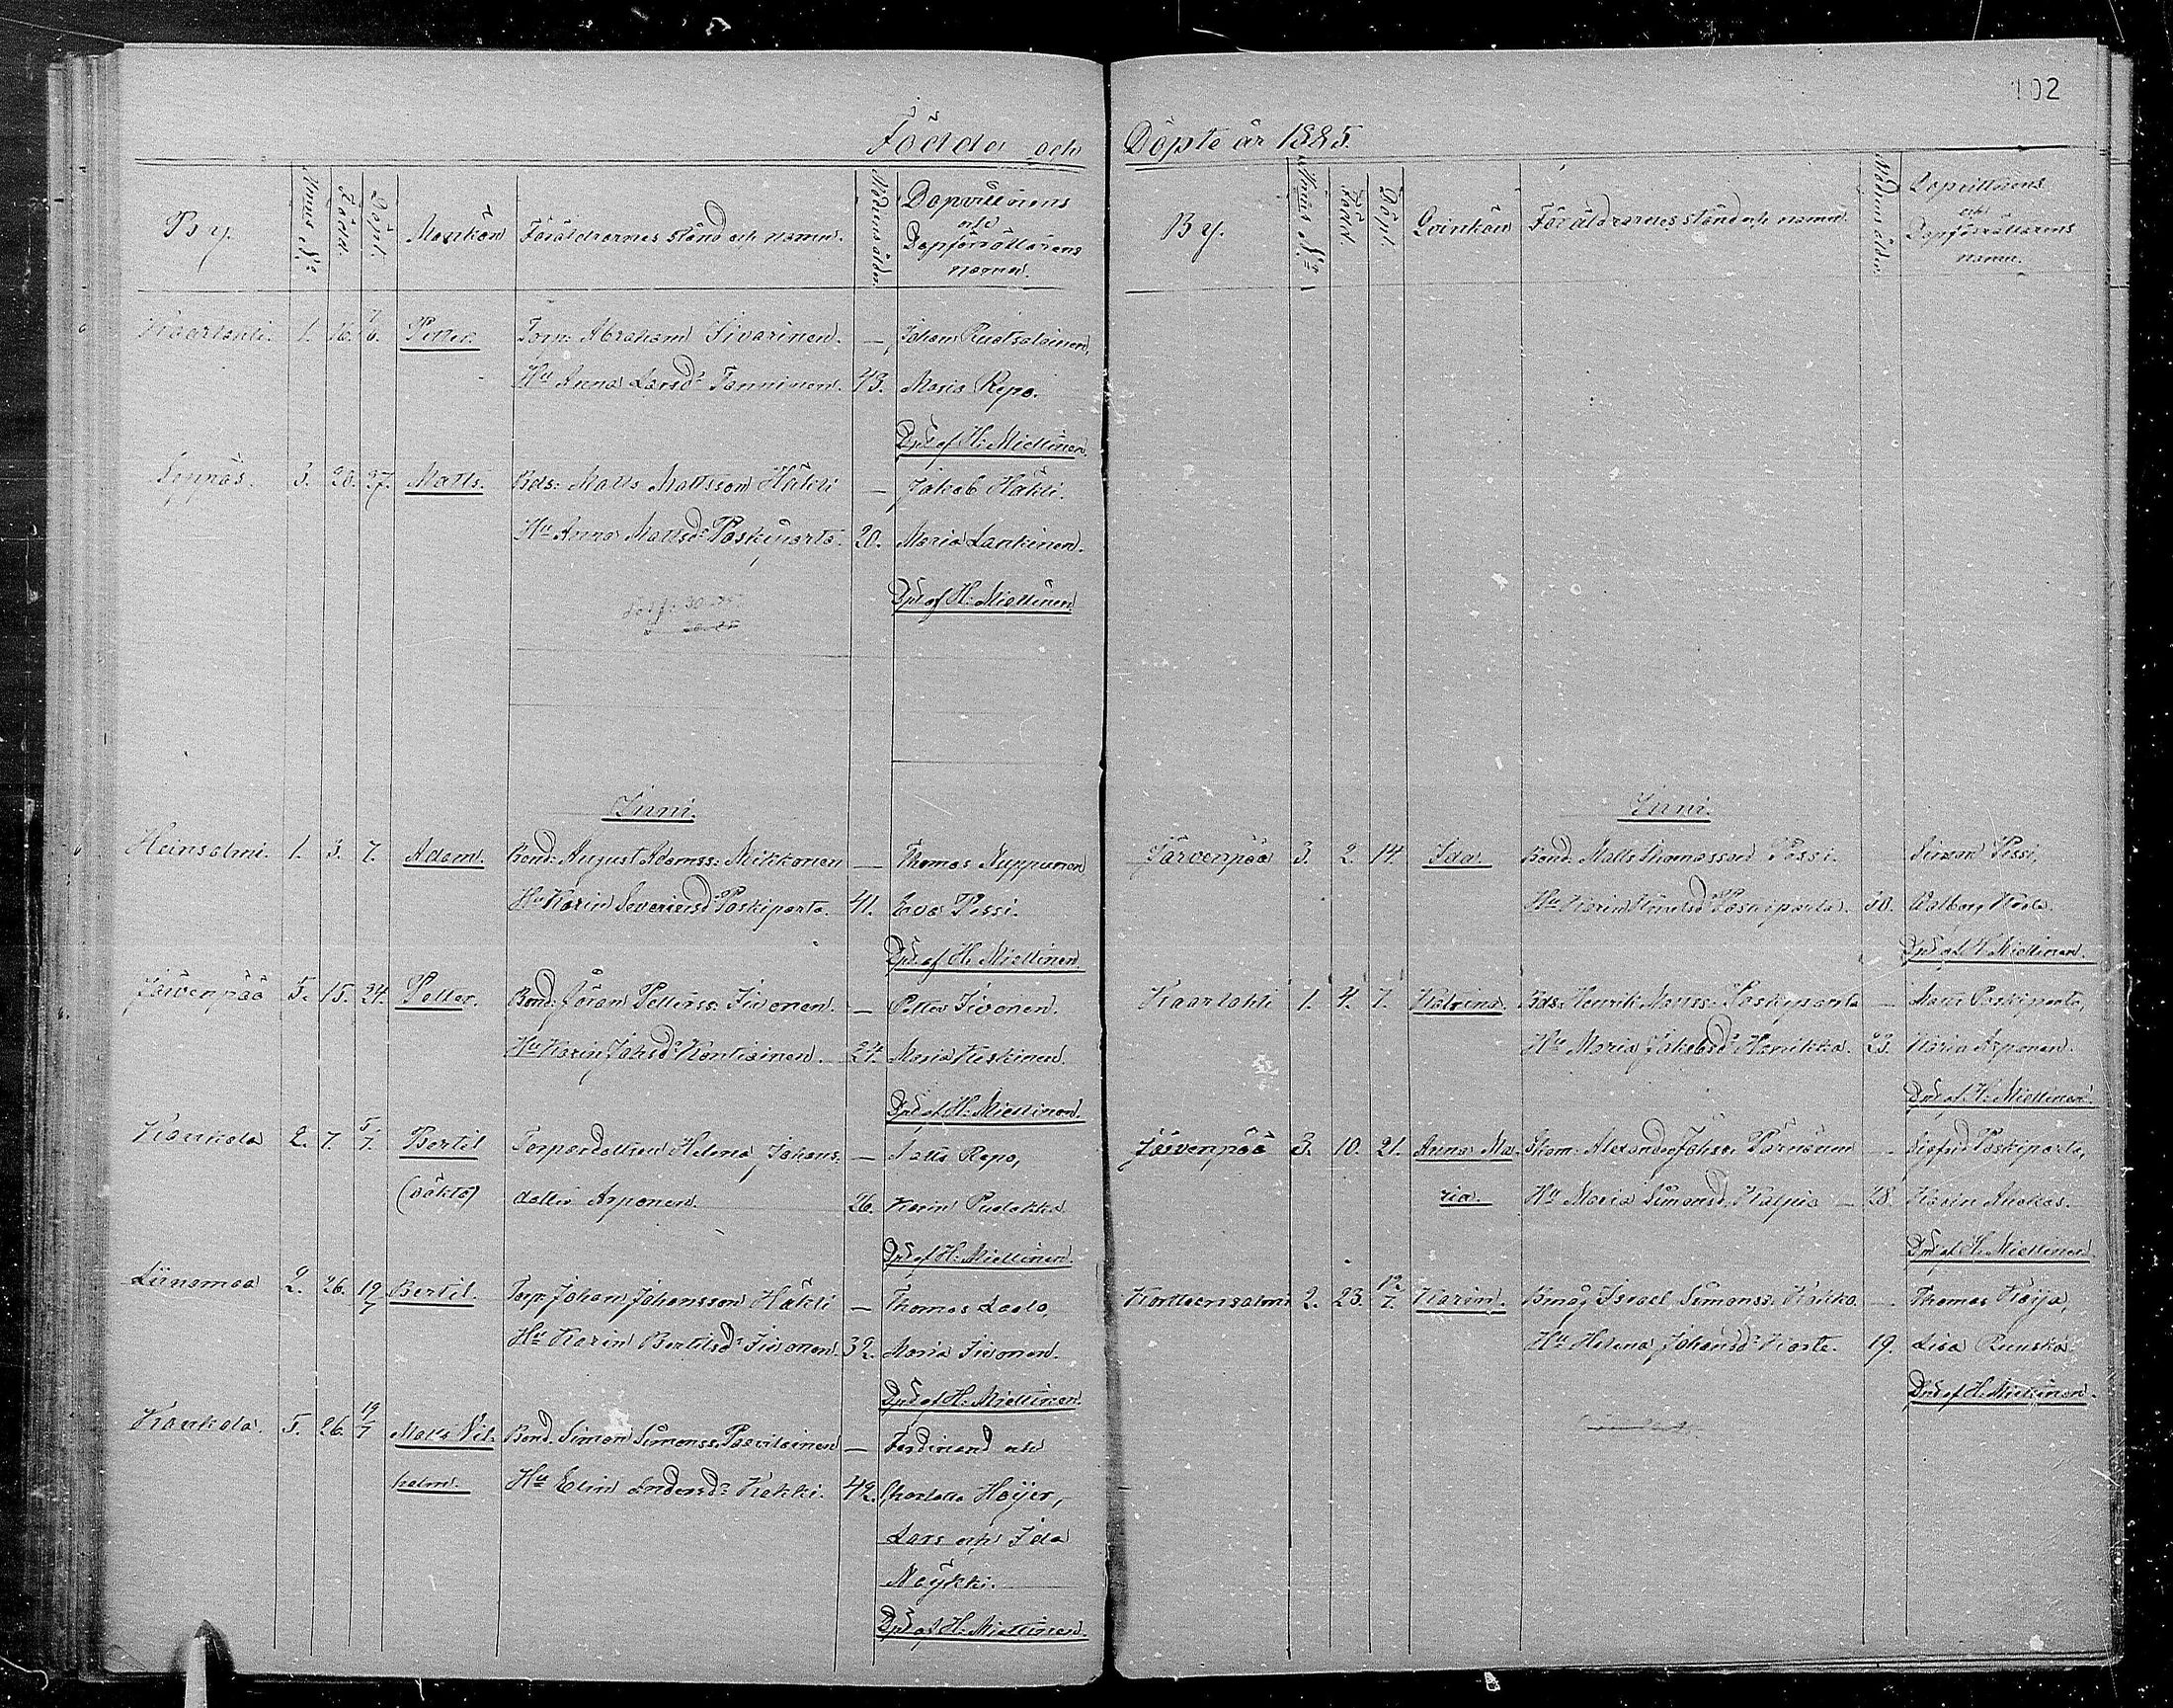 102
Födde och Döpte år 1885.
By. Hus N:o Född. Döpt. Mankön Föräldrarnes stånd och namn. Modrens ålder. Dopvittnens
och
Dopförrättarens
namn.
Kaarlahti. 1. 16. 7/6. Petter. Torp: Abraham Sivarinen. — Johan Ruotsalainen,
Hu Anna Larsdr Tanninen. 43. Maria Repo.
Dpt af H. Miettinen.
Leppäs. 3. 20. 27. Matts. Bds: Matts Mattsson Häkli — Jakob Häkli.
Hu Anna Mattsdr Paskiparta. 20. Maria Lankinen.
Dpt af H. Miettinen
Juni.
Heinsalmi. 1. 3. 7. Adam. Bond: August Adamss: Mikkonen — Thomas Nuppunen
Hu Karin Severinsdr Paskiparta. 41. Eva Pessi.
Dpt af H. Miettinen.
Järvenpää 5. 15. 24. Petter. Bond: Göran Petterss: Sivonen. — Petter Sivonen.
Hu Karin Johsdr Kontiainen. 27. Maria Keskinen.
Dpt af H. Miettinen.
Kankola 2. 7. 5/7. Bertil Torpardottren Helena Johans- — Matts Repo,
(oäkta) dotter Arponen. 26. Karin Pudakka
Dpt af H. Miettinen.
Liinamaa 2. 26. 19/7 Bertil. Torp: Johan Johansson Häkli — Thomas Laalo,
Hu Karin Bertilsdr Sivonen. 32. Maria Sivonen.
Dpt af H. Miettinen.
Kankola. 5. 26. 19/7 Matts Vil- Bond. Simon Simonss. Paavilainen — Ferdinand och
helm. Hu Elin Andersdr Kokki. 42. Charlotta Höijer,
Lars och Ida
Näykki.
Dpt af H. Miettinen.
By. Hus N:o Född. Döpt. Qvinkön Föräldrarnes stånd och namn. Modrens ålder. Dopvittnens
och
Dopförrättarens
namn.
Juni.
Järvenpää 3. 2. 14. Ida. Bond: Matts Thomasson Pessi. Simon Pessi,
Hu Karin Paskiparta. 30. Walborg
Dpt af H. Miettinen.
Kaarlahti 1. 4. 7. Katrina. Bds: Henrik Mattss: Paskiparta — Matts Paskiparta,
Hu Maria Jakobsdr Hanikka. 23. Maria Arponen.
Dpt af H. Miettinen.
Järvenpää 3. 10. 21. Anna Ma- Alexander Johss: Pärnänen — Sigfrid Paskiparta,
ria. Hu Maria Simonsd. — 28. Karin
Dpt af H. Miettinen
Korttensalmi 2. 23. 12/7. Karin. Israel Simonss. Kokko. — Thomas Koija,
Hu Helena Johansdr 19. Lisa Ruuska.
Dpt af H. Miettinen.